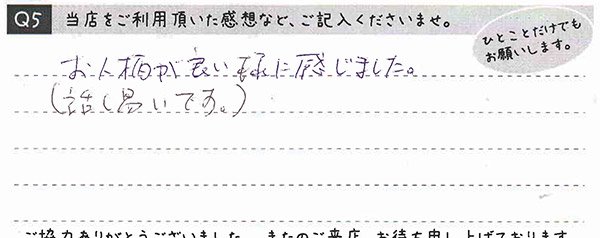 Q5 当店をご利用頂いた感想など、ご記入くださいませ。
ひとことだけでも
お願いします。
お人柄が良い様に感じました。
(話し易いです。)
ご協力ありがとうございました。またのご来店、お待ち申し上げております。